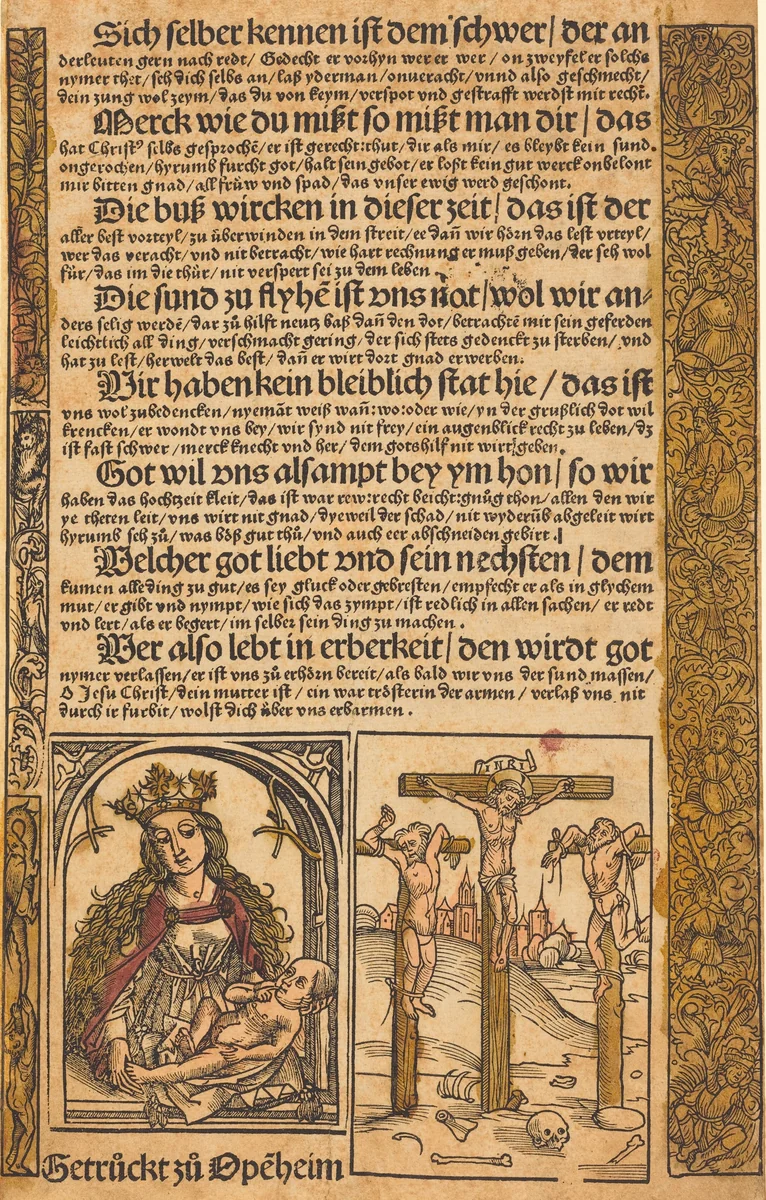 Sich selber kennen ist dem schwer/ der an
derleuten gern nach redt/ Gedecht er vorhyn wer er wer/ on zweyfel er solchs
nymer thet/sch dich selbs an/laß yderman/onueracht/vnnd also geschmecht/
dein zung wol zeym/das du von keym/verspot vnd gestrafft werdst mit recht.
Merck wie du mißt so mißt man dir/ das
hat Christ⁹ silbs gesprochē/er ist gerecht:thut/dir als mir/es bleybt kein sund.
ongerochen/hyrumb furcht got/halt sein gebot/er loßt kein gut werck onbelont
mir bitten gnad/all früw vnd spad/das vnser ewig werd geschont.
Die buß wircken in dieser zeit/ das ist der
aller best vorteyl/zu überwinden in dem streit/ee dañ wir hörn das lest vrteyl/
wer das veracht/vnd nit betracht/wie hart rechnung er muß geben/der seh wol
für/das im die thür/nit verspert sei zu dem leben.
Die sund zu flyhē ist vns not/wol wir an⸗
ders selig werdē/dar zů hilft neutz baß dañ den dot/betrachtē mit sein geferden
leichtlich all ding/verschmacht gering/der sich stets gedenckt zu sterben/vnd
hat zu lest/herwelt das best/dañ er wirt dort gnad erwerben.
Wir haben kein bleiblich stat hie/das ist
vns wol zubedencken/nyemāt weiß wañ:wo:oder wie/yn der grußlich dot wil
krencken/er wondt vns bey/wir synd nit frey/ein augenblick recht zu leben/dz
ist fast schwer/merck knecht vnd her/dem gotshilf nit wirt geben.
Got wil vns alsampt bey ym hon/so wir
haben das hochtzeit kleit/das ist war rew:recht beicht:gnůg thon/allen den wir
ye theten leit/vns wirt nit gnad/dyeweil der schad/nit wyderūb abgeleit wirt
hyrumb seh zů/was böß gut thů/vnd auch eer abschneiden gebirt.
Welcher got liebt vnd sein nechsten/dem
kumen alle ding zu gut/es sey gluck oder gebresten/empfecht er als in glychem
mut/er gibt vnd nympt/wie sich das zympt/ist redlich in allen sachen/er redt
vnd lert/als er begert/im selber sein ding zu machen.
Wer also lebt in erberkeit/den wirdt got
nymer verlassen/er ist vns zů erhörn bereit/als bald wir vns der sund massen/
O Jesu Christ/dein mutter ist/ein war trösterin der armen/verlaß vns nit
durch ir furbit/wolst dich über vns erbarmen.
INRI
Getrůckt zů Opēheim